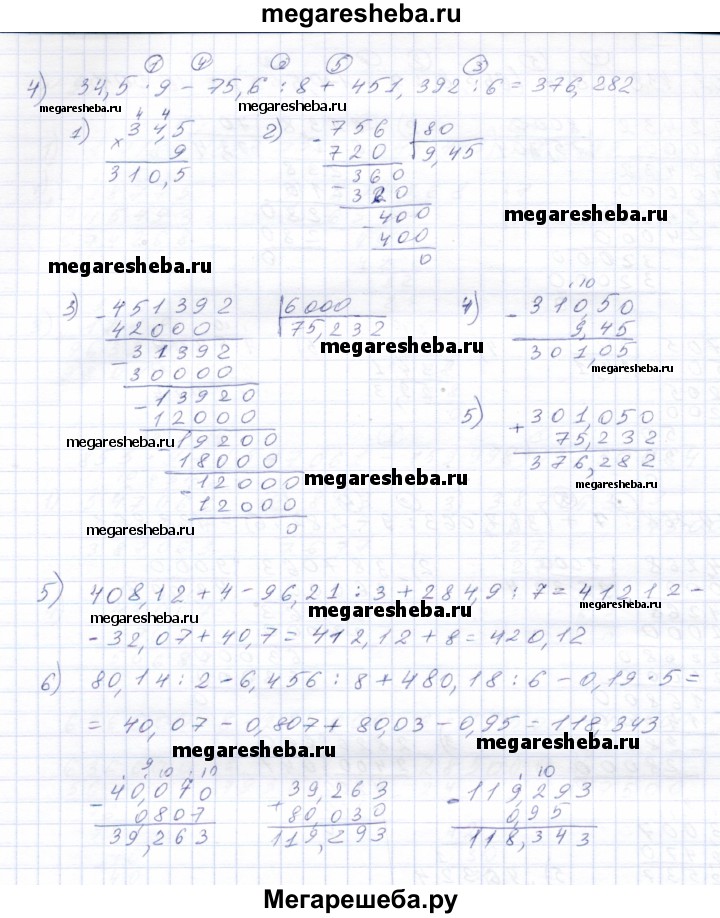 megaresheba.ru
① ④ ⑥ ⑤ ③
4) 34,5 · 9 - 75,6 : 8 + 451,392 : 6 = 376,282
megaresheba.ru megaresheba.ru
4 4
1) 34,5 2) - 756 | 80
× 9 720 | 9,45
310,5 360
- 320
400
- 400
0
megaresheba.ru
megaresheba.ru
· 10
3) - 451392 | 6000 4) - 310,50
42000 | 75,232 9,45
megaresheba.ru
- 31392 301,05
30000 megaresheba.ru
- 13920
12000 5) + 301,050
megaresheba.ru - 19200 75,232
18000 376,282
- 12000 megaresheba.ru megaresheba.ru
12000
megaresheba.ru 0
5) 408,12 + 4 - 96,21 : 3 + 284,9 : 7 = 412,12 -
megaresheba.ru megaresheba.ru megaresheba.ru
- 32,07 + 40,7 = 412,12 + 8 = 420,12
6) 80,14 : 2 - 6,456 : 8 + 480,18 : 6 - 0,19 · 5 =
= 40,07 - 0,807 + 80,03 - 0,95 = 118,343
megaresheba.ru megaresheba.ru
· 9 · 10 · 10 · 10
- 40,070 39,263 - 119,293
0,807 + 80,030 0,95
39,263 119,293 118,343
Мегарешеба.ру